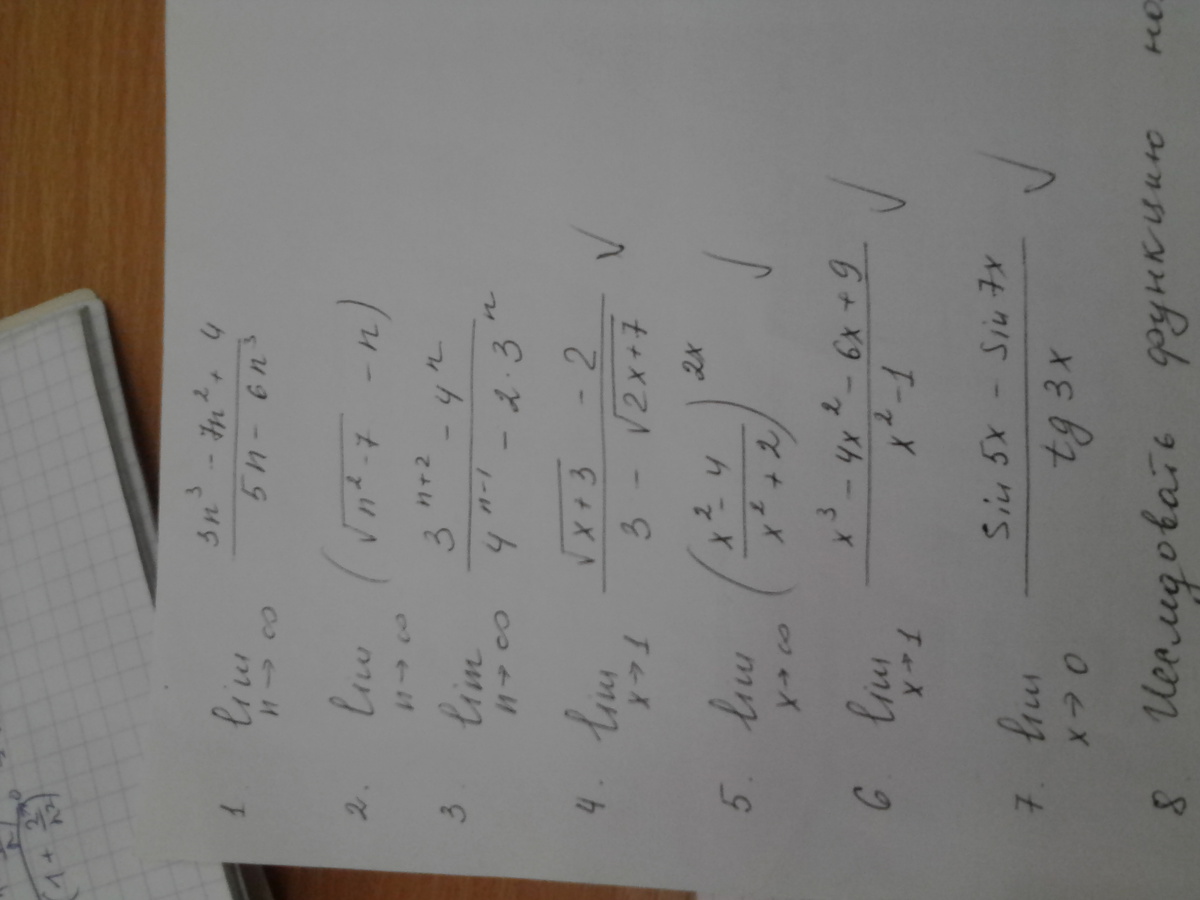 1. lim n→∞ (3n³ - 7n² + 4)/(5n - 6n³)
2. lim n→∞ (√(n² - 7) - n)
3. lim n→∞ (3ⁿ⁺² - 4ⁿ)/(4ⁿ⁻¹ - 2·3ⁿ)
4. lim x→1 (√(x+3) - 2)/(3 - √(2x+7)) √
5. lim x→∞ ((x² - 4)/(x² + 2))²ˣ √
6. lim x→1 (x³ - 4x² - 6x + 9)/(x² - 1) √
7. lim x→0 (sin 5x - sin 7x)/(tg 3x) √
8 Исследовать функцию